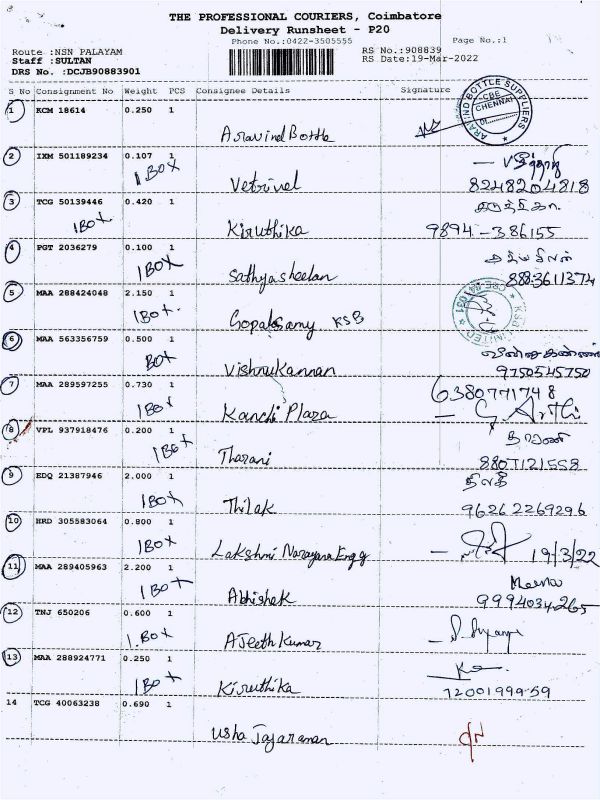 THE PROFESSIONAL COURIERS, Coimbatore
Delivery Runsheet - P20
Phone No.:0422-3505555
Page No.:1
Route :NSN PALAYAM
RS No.:908839
Staff :SULTAN
RS Date:19-Mar-2022
DRS No. :DCJB90883901
S No Consignment No Weight PCS Consignee Details Signature
1 KCM 18614 0.250 1
Aravind Bottle
ARAVIND BOTTLE SUPPLIERS
CBE
CHENNAI
2 IXM 501189234 0.107 1
1 BOX
Vetrivel
8248204818
3 TCG 50139446 0.420 1
கிருத்திகா.
1 BOX
Kiruthika 9894-386155
4 PGT 2036279 0.100 1
1 BOX
Sathyasheelan 8883611374
5 MAA 288424048 2.150 1
1 BOX.
Gopalsamy KSB
6 MAA 563356759 0.500 1
BOX
Vishnukannan 9750545750
7 MAA 289597255 0.730 1
6380771748
1 BOX
Kanchi Plaza
8 VPL 937918476 0.200 1
தாரணி
1 BOX
Tharani 8807121558
9 EDQ 21387946 2.000 1
திலக்
1 BOX
Thilak 96262269296
10 HRD 305583064 0.800 1
1 BOX
Lakshmi Narayana Engg 19/3/22
11 MAA 289405963 2.200 1
Meena
1 BOX
Abhishek 9994034265
12 TNJ 650206 0.600 1
1.BOX
Ajeeth Kumar
13 MAA 288924771 0.250 1
1 BOX
Kiruthika 7200199959
14 TCG 40063238 0.690 1
Usha Jajaraman